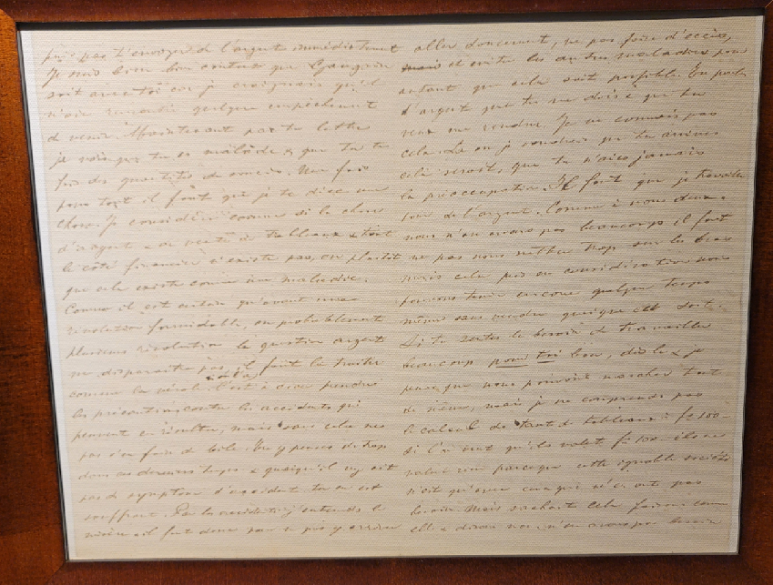 puis pas t'envoyer de l'argent immédiatement
Je suis bien bien content que Gauguin
soit avec toi car je craignais qu'il
n'ait rencontré quelque empêchement
à venir. Maintenant par ta lettre
je vois que tu es malade & que tu te
fais des quantités de soucis. Une fois
pour tout il faut que je te dise une
chose. Je considère comme si la chose
d'argent & de vente de tableaux & tout
le coté financier n'existe pas, ou plutôt
que cela existe comme une maladie.
Comme il est certain qu'avant une
révolution formidable, ou probablement
plusieurs révolutions la question argent
ne disparaitra pas, il faut la traiter
comme la vérole c'est à dire prendre
les précautions contre les accidents qui
peuvent en résulter, mais sans cela
pas s'en faire de bile. Tu y penses de trop
dans ces derniers temps & quoiqu'il n'y ait
pas de symptôme d'accident tu en es
souffrant. Par les accidents j'entends la
misère & il faut donc pour ne pas y arriver
aller doucement, ne pas faire d'excès,
et eviter les autres maladies pour
autant que cela soit possible. Tu parles
d'argent que tu me dois & que tu
veux me rendre. Je ne connais pas
cela. Ce où je voudrais que tu arrives
cela serait, que tu n'aies jamais
la préoccupation. Il faut que je travaille
pour de l'argent. Comme à nous deux
nous n'en avons pas beaucoup il faut
ne pas nous mettre trop sur les bras
mais cela pris en considération nous
pouvons tenir encore quelque temps
même sans vendre quoique ce soit.
Si tu sentes le besoin de travailler
beaucoup pour toi bon, dis le & je
pense que nous pouvons marcher tout
de même, mais je ne comprends pas
le calcul de tant de tableaux à fr 100.
Si l'on veut qu'ils valent fr 100. ils ne
valent rien parceque cette ignoble société
n'est qu'avec ceux qui n'en ont pas
besoin. Mais sachant cela faisons comme
elle & disons nous n'en avons pas besoin